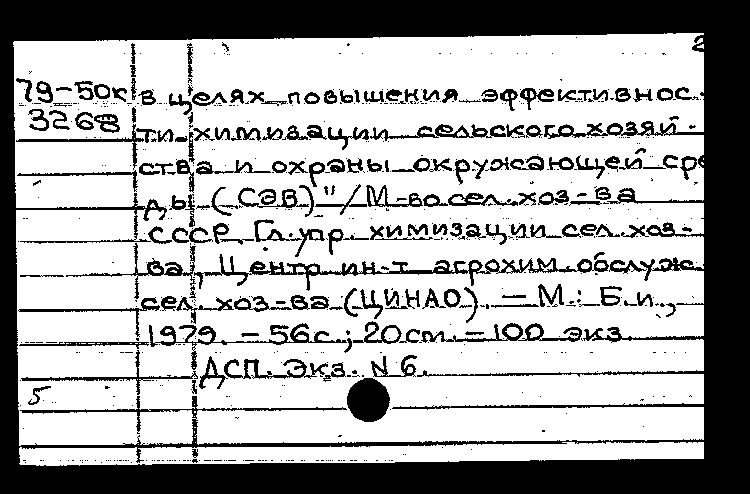 2
79-50к в целях повышения эффективнос-
3268 ти химизации сельского хозяй-
ства и охраны окружающей сре
ды (СЭВ)"/М-во сел. хоз-ва
СССР, Гл. упр. химизации сел. хоз-
ва, Центр. ин-т агрохим. обслуж.
сел. хоз-ва (ЦИНАО). — М.: Б. и.,
1979. – 56 с.; 20 см. – 100 экз.
ДСП. Экз. N 6.
5